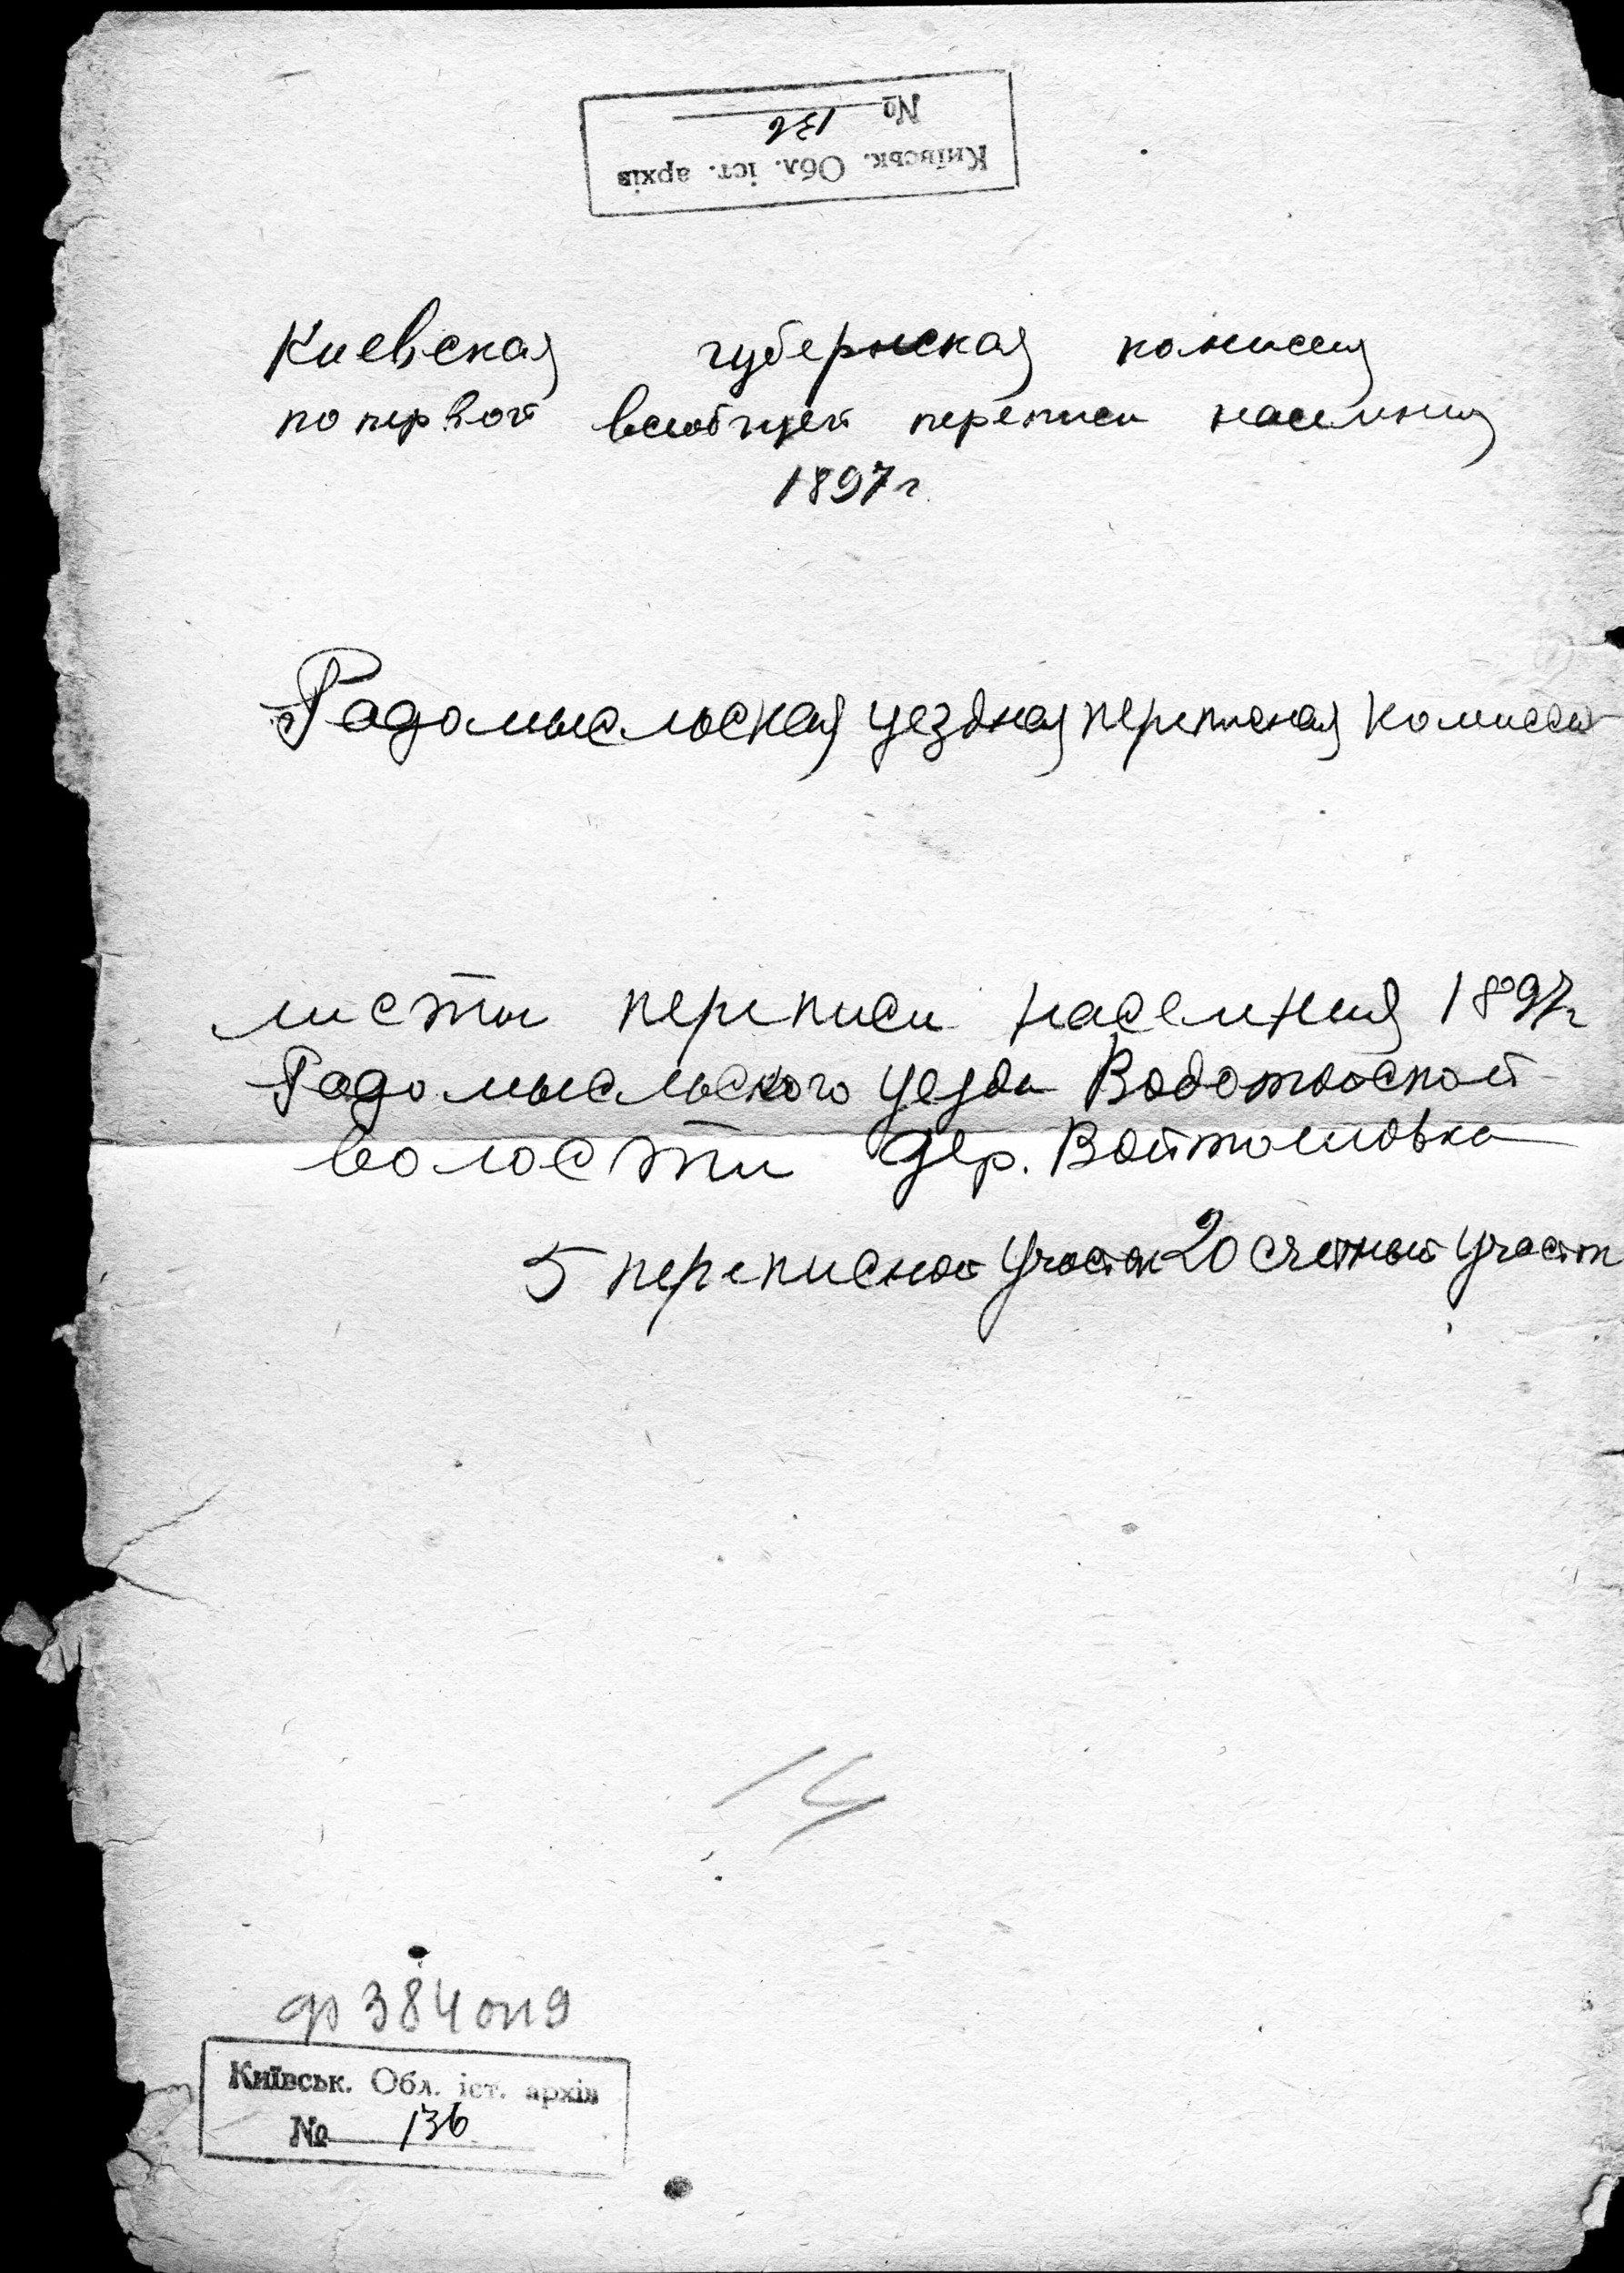 Київськ. Обл. іст. архів
№ 136
Киевская губернская комиссия
по первой всеобщей переписи населения
1897 г.
Радомысльская уездная переписная комиссия
листы переписи населения 1897 г
Радомысльского уезда Водотыской
волости дер. Войташовка
5 переписной участок 20 счетный участок
14
ф 384 оп 9
Київськ. Обл. іст. архів
№ 136